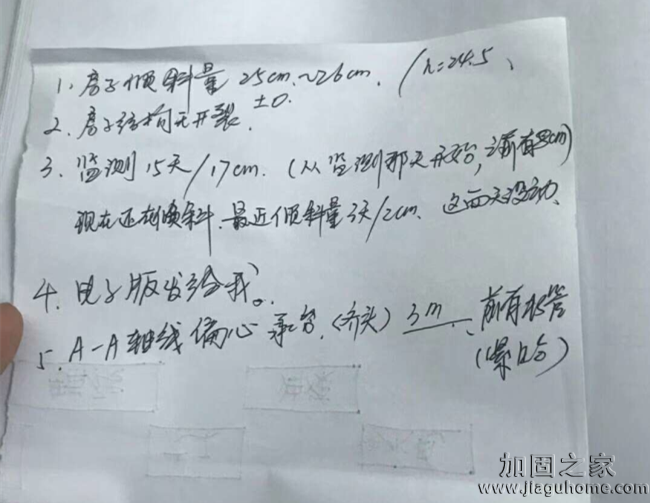 1、房子倾斜量 25cm~26cm. /h=24.5、
2、房子结构无开裂. ±0.
3、监测15天/17cm.（从监测那天开始，之前有8cm）
现在还在倾斜. 最近倾斜量3天/2cm. 这两天没动、
4、电子版发给我。
5、A-A轴线偏心承台.（齐头）3m 、前有水管
（爆口）
加固之家
www.jiaguhome.com